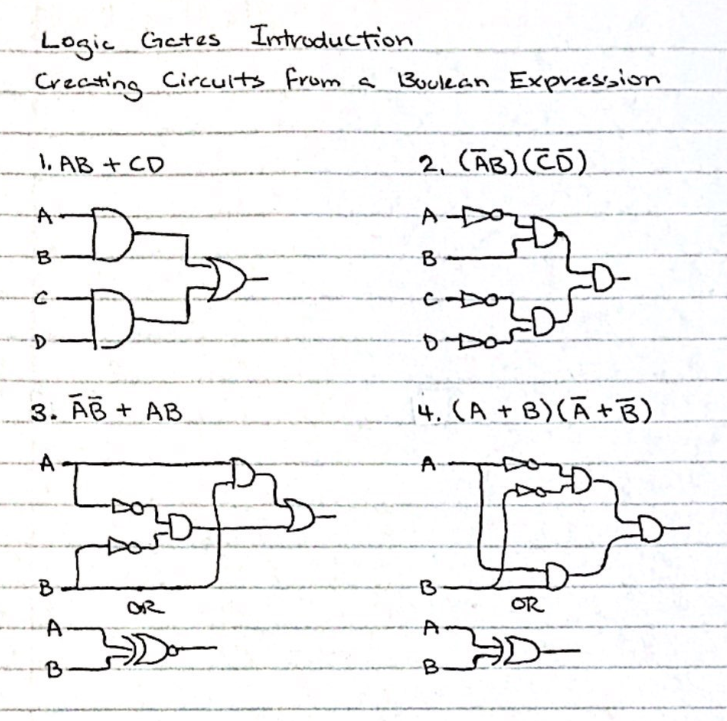 Logic Gates Introduction
Creating Circuits from a Boolean Expression
1. AB + CD
2. (A̅B)(C̅D̅)
A
B
C
D
A
B
C
D
3. A̅B̅ + AB
4. (A + B)(A̅ + B̅)
A
B
OR
A
B
A
B
OR
A
B